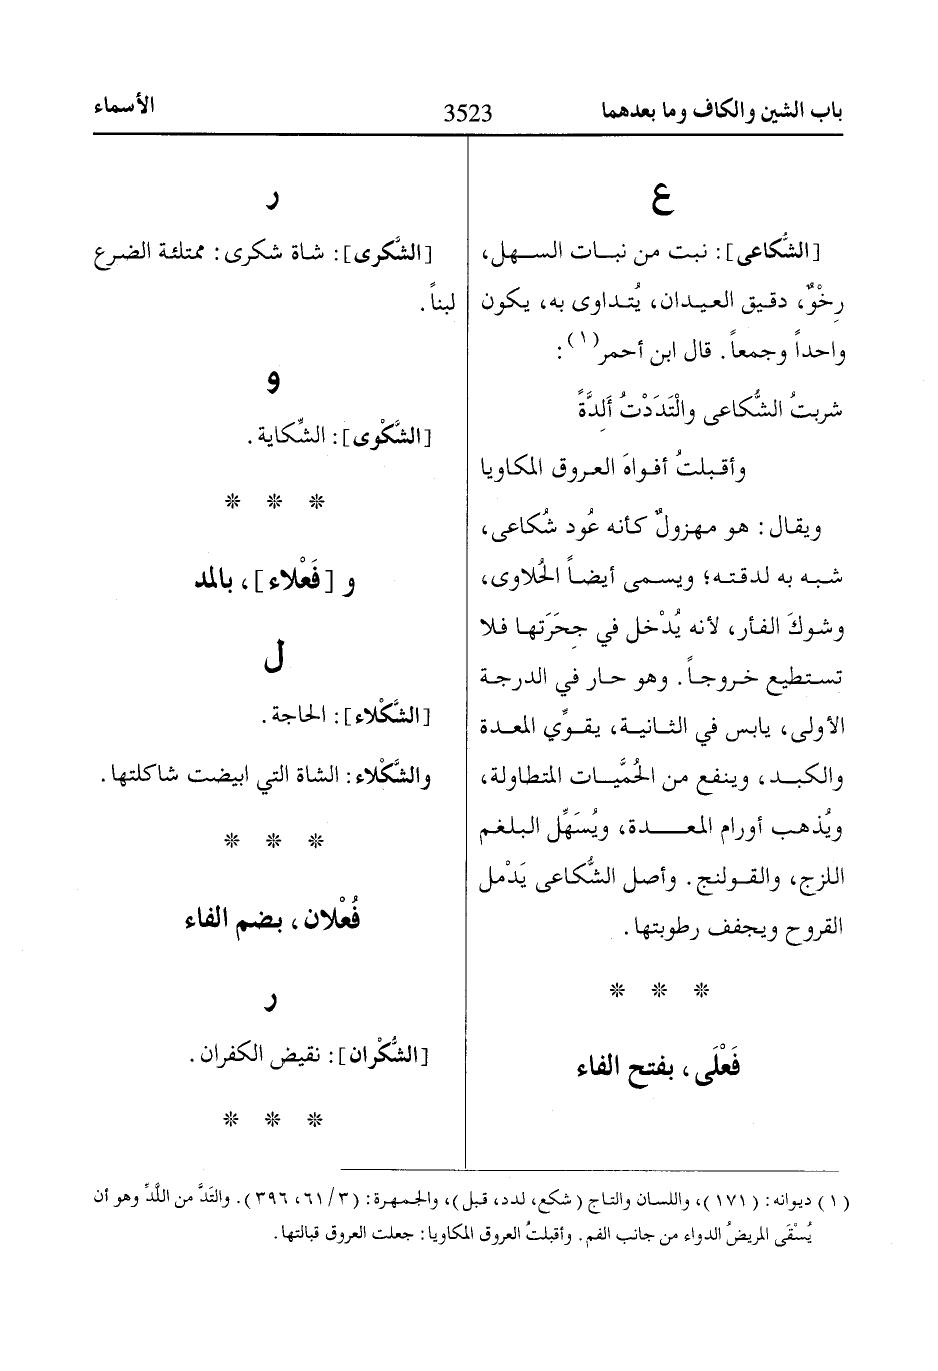 باب الشين والكاف وما بعدهما
3523
الأسماء
ع
[الشُّكاعى]: نبت من نبات السهل،
رِخْوٌ، دقيق العيدان، يُتداوى به، يكون
واحداً وجمعاً. قال ابن أحمر(١):
شربتُ الشُّكاعى والْتَدَدْتُ ألِدَّةً
وأقبلتُ أفواهَ العروق المكاويا
ويقال: هو مهزولٌ كأنه عُود شُكاعى،
شبه به لدقته؛ ويسمى أيضاً الحُلاوى،
وشوكَ الفأر، لأنه يُدْخل في جِحَرَتها فلا
تستطيع خروجاً. وهو حار في الدرجة
الأولى، يابس في الثانية، يقوِّي المعدة
والكبد، وينفع من الحُمَّيات المتطاولة،
ويُذهب أورام المعدة، ويُسَهِّل البلغم
اللزج، والقولنج. وأصل الشُّكاعى يَدْمل
القروح ويجفف رطوبتها.
* * *
فَعْلَى، بفتح الفاء
ر
[الشَّكرى]: شاة شكرى: ممتلئة الضرع
لبناً.
و
[الشَّكْوى]: الشِّكاية.
* * *
و [فَعْلاء]، بالمد
ل
[الشَّكْلاء]: الحاجة.
والشَّكْلاء: الشاة التي ابيضت شاكلتها.
* * *
فُعْلان، بضم الفاء
ر
[الشُّكْران]: نقيض الكفران.
* * *
(١) ديوانه: (١٧١)، واللسان والتاج (شكع، لدد، قبل)، والجمهرة: (٣/٦١، ٣٩٦). والتَدَّ من اللَّدِّ وهو أن
يُسْقَى المريضُ الدواء من جانب الفم. وأقبلتُ العروق المكاويا: جعلت العروق قبالتها.